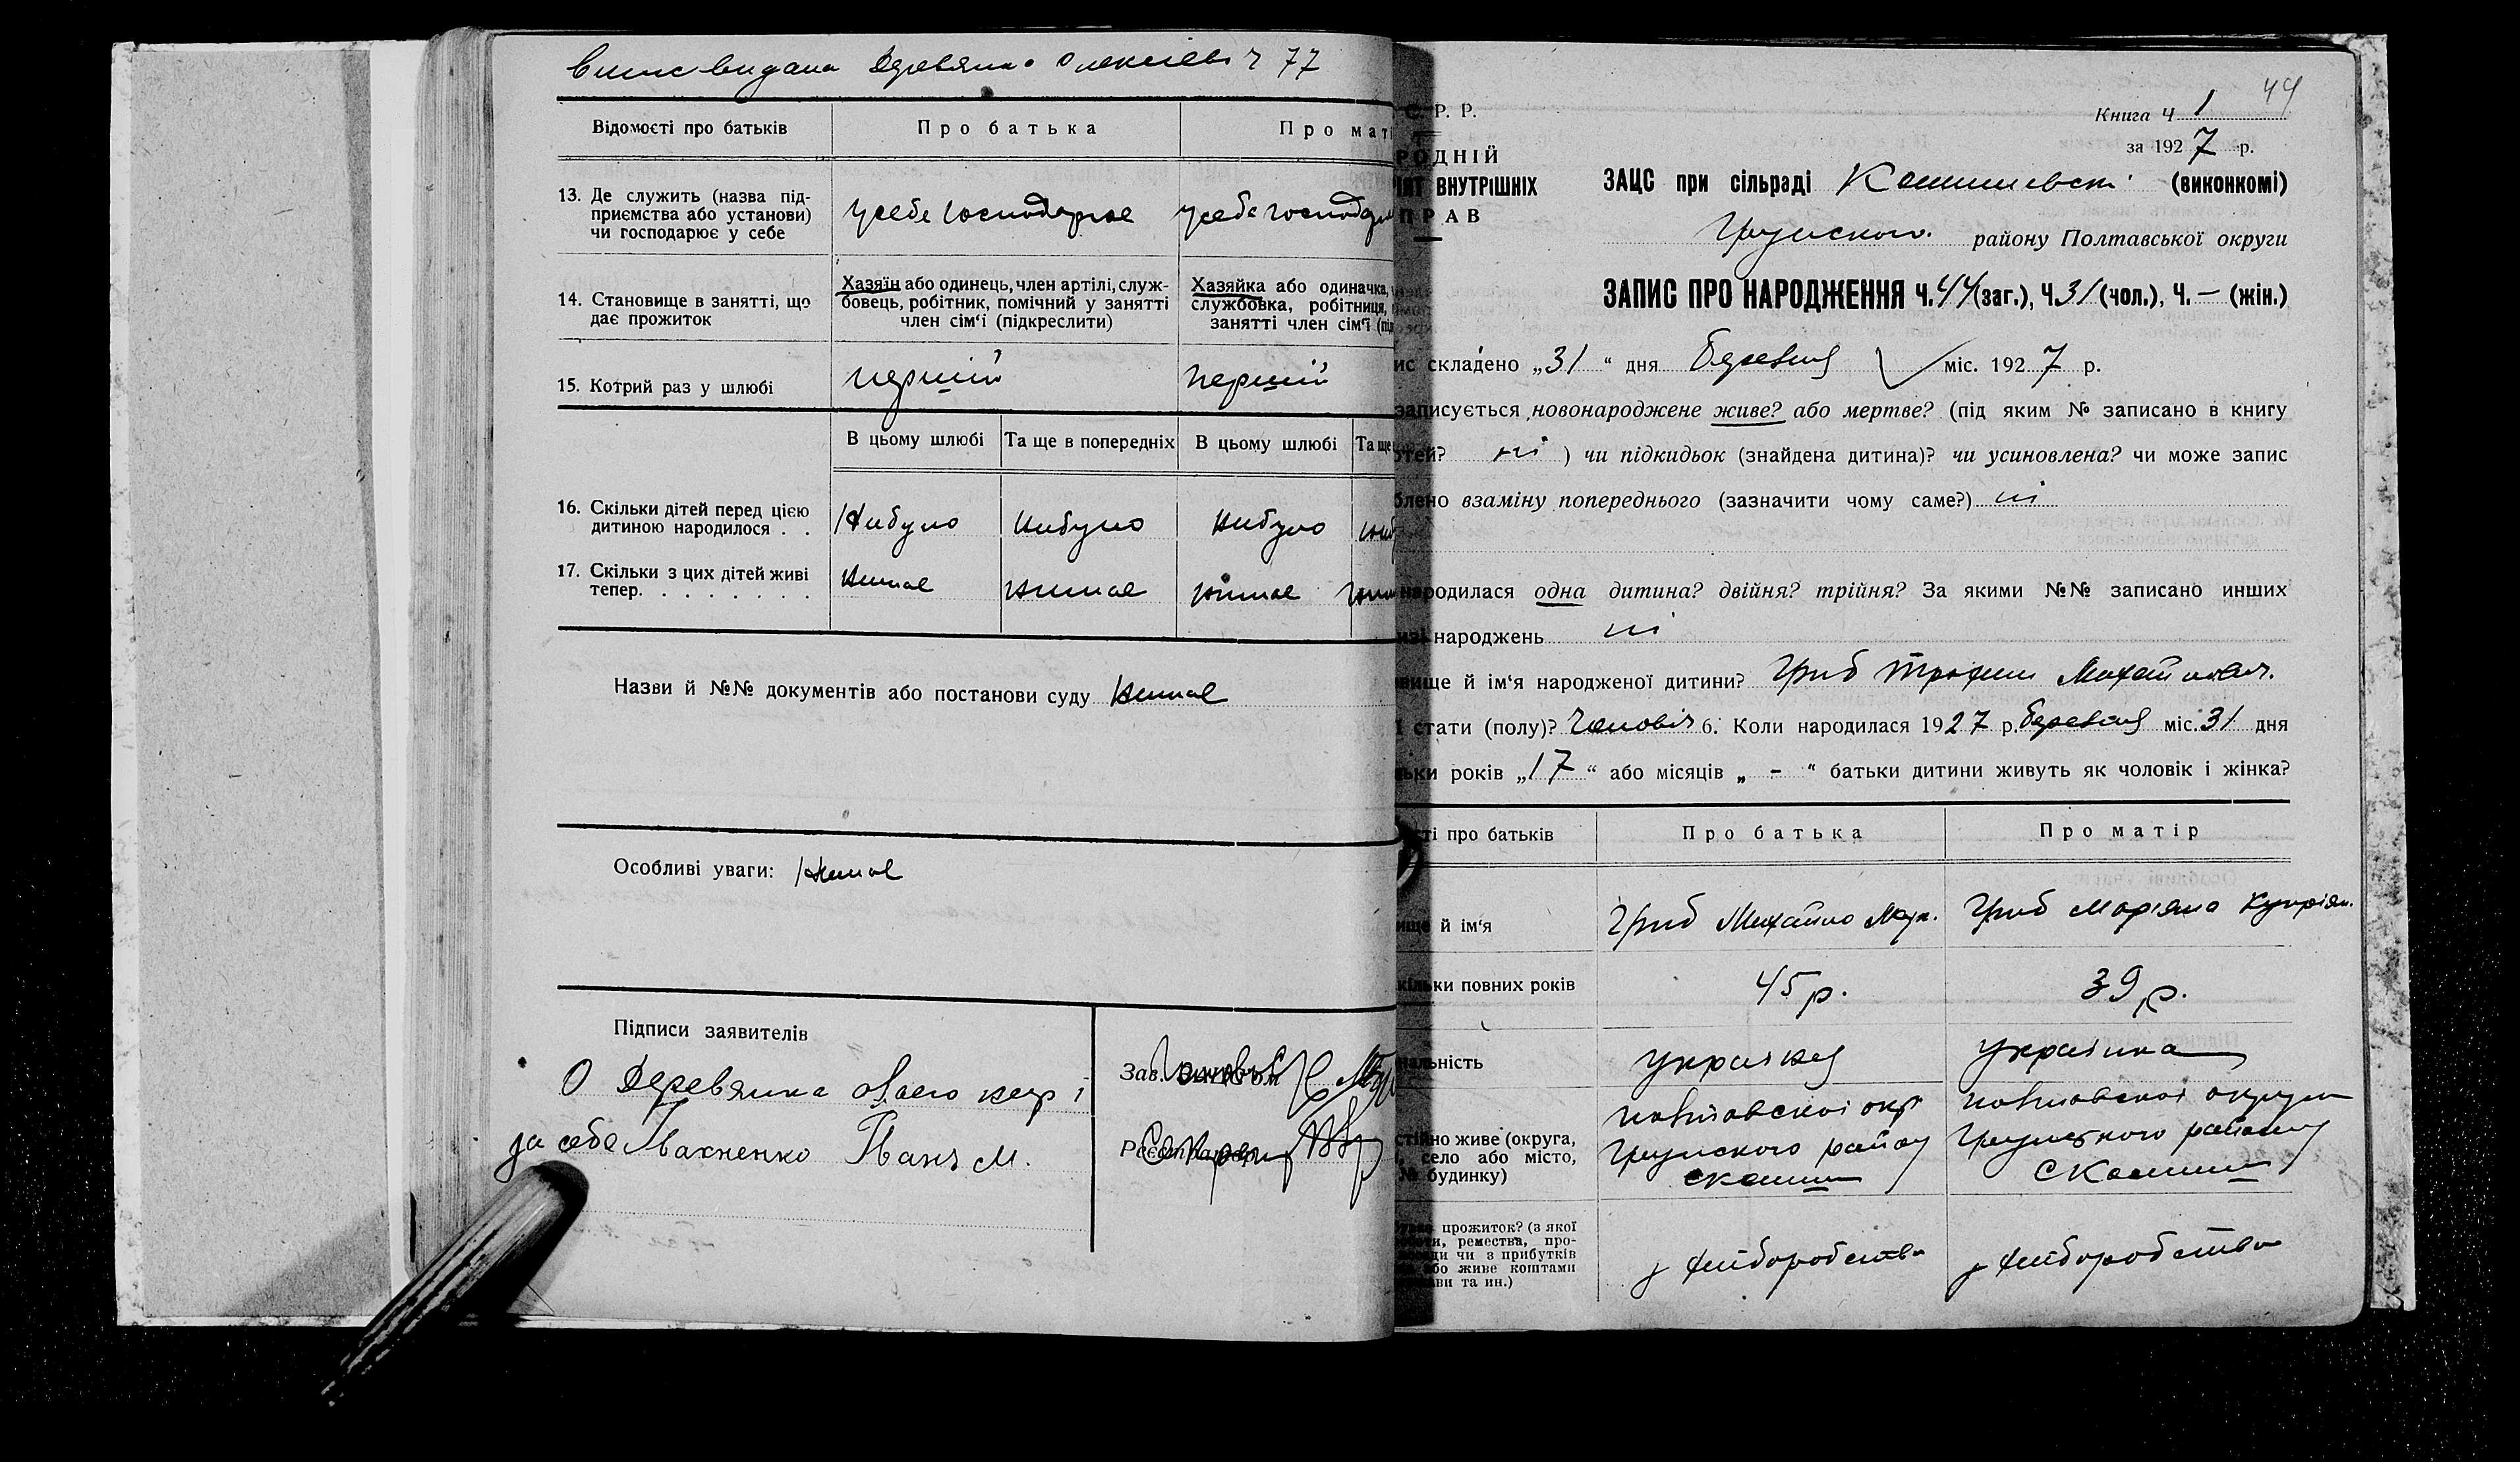 Випис видана Деревянко Олексієві Ч 77
Відомості про батьків
Про батька
Про маті
13. Де служить (назва під-
приємства або установи)
чи господарює у себе
у себе господарює
у себе господарює
14. Становище в занятті, що
дає прожиток
Хазяїн або одинець, член артілі, служ-
бовець, робітник, помічний у занятті
член сім'ї (підкреслити)
Хазяйка або одиначка,
службовка, робітниця,
занятті член сім'ї (під
15. Котрий раз у шлюбі
перший
перший
В цьому шлюбі
Та ще в попередніх
В цьому шлюбі
Та ще
16. Скільки дітей перед цією
дитиною народилося . .
Небуло
небуло
небуло
17. Скільки з цих дітей живі
тепер. . . . . . . .
немає
немає
немає
Назви й №№ документів або постанови суду немає
Особливі уваги: Немає
Підписи заявителів
О Деревянка
за себе Івахненко Іванъ М.
Зав.
44
Книга Ч 1
за 1927 р.
С. Р. Р.
РОДНІЙ
ІЯТ ВНУТРІШНІХ
ПРАВ
ЗАЦС при сільраді (виконкомі)
Грунского району Полтавської округи
ЗАПИС ПРО НАРОДЖЕННЯ Ч. 44 (заг.), Ч. 31 (чол.), Ч. — (жін.)
ис складено „31" дня березня міс. 1927 р.
записується новонароджене живе? або мертве? (під яким № записано в книгу
ртей? ні ) чи підкидьок (знайдена дитина)? чи усиновлена? чи може запис
блено взаміну попереднього (зазначити чому саме?) ні
народилася одна дитина? двійня? трійня? За якими №№ записано инших
народжень ні
вище й ім'я народженої дитини? Гриб Трохим Михайлович.
стати (полу)? Чоловіч 6. Коли народилася 1927 р. березня міс. 31 дня
льки років „17" або місяців „ - " батьки дитини живуть як чоловік і жінка?
ті про батьків
Про батька
Про матір
ище й ім'я
Гриб Михайло
Гриб Маріяна Купріян.
кільки повних років
45 р.
39 р.
нальність
українка
стійно живе (округа,
село або місто,
№ будинку)
Полтавскоі окр
Грунского району
Полтавскоі округи
Грунского району
прожиток? (з якої
ремества, про-
чи з прибутків
або живе коштами
ви та ин.)
з хліборобства
з хліборобства